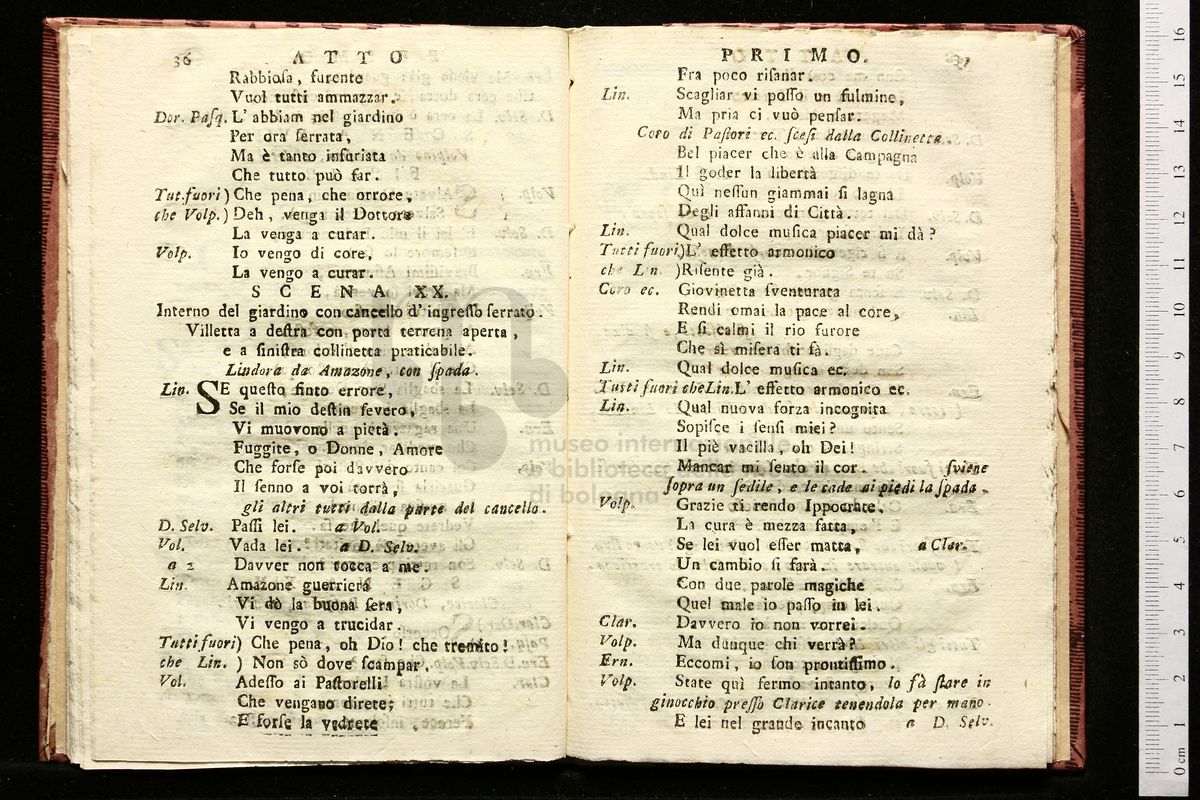 36 ATTO
Rabbioſa, furente
Vuol tutti ammazzar.
Dor. Paſq. L' abbiam nel giardino
Per ora ſerrata,
Ma è tanto infuriata
Che tutto può far.
Tut.fuori) Che pena, che orrore,
che Volp.) Deh, venga il Dottore
La venga a curar.
Volp. Io vengo di core,
La vengo a curar.
SCENA XX.
Interno del giardino con cancello d' ingreſſo ſerrato.
Villetta a deſtra con porta terrena aperta,
e a ſiniſtra collinetta praticabile.
Lindora da Amazone, con ſpada.
Lin. SE queſto finto errore,
Se il mio deſtin ſevero,
Vi muovono a pietà.
Fuggite, o Donne, Amore
Che forſe poi davvero
Il ſenno a voi torrà,
gli altri tutti dalla parte del cancello.
D. Selv. Paſſi lei. a Vol.
Vol. Vada lei. a D. Selv.
a 2 Davver non tocca a me.
Lin. Amazone guerriera
Vi dò la buona ſera,
Vi vengo a trucidar.
Tutti fuori) Che pena, oh Dio! che tremito!
che Lin. ) Non sò dove ſcampar.
Vol. Adeſſo ai Paſtorelli
Che vengano direte;
E forſe la vedrete
PRIMO. 37
Fra poco riſanar.
Lin. Scagliar vi poſſo un fulmine,
Ma pria ci vuò penſar.
Coro di Paſtori ec. ſceſi dalla Collinetta.
Bel piacer che è alla Campagna
Il goder la libertà
Quì neſſun giammai ſi lagna
Degli affanni di Città.
Lin. Qual dolce muſica piacer mi dà?
Tutti fuori) L' effetto armonico
che Lin. ) Riſente già.
Coro ec. Giovinetta ſventurata
Rendi omai la pace al core,
E ſi calmi il rio furore
Che sì miſera ti fà.
Lin. Qual dolce muſica ec.
Tutti fuori che Lin. L' effetto armonico ec.
Lin. Qual nuova forza incognita
Sopiſce i ſenſi miei?
Il piè vacilla, oh Dei!
Mancar mi ſento il cor. ſviene
ſopra un ſedile, e le cade ai piedi la ſpada.
Volp. Grazie ti rendo Ippocrate.
La cura è mezza fatta,
Se lei vuol eſſer matta, a Clar.
Un cambio ſi farà.
Con due parole magiche
Quel male io paſſo in lei.
Clar. Davvero io non vorrei.
Volp. Ma dunque chi verrà?
Ern. Eccomi, io ſon prontiſſimo.
Volp. State quì fermo intanto, lo fà ſtare in
ginocchio preſſo Clarice tenendola per mano.
E lei nel grande incanto a D. Selv.
museo internazionale
e biblioteca
di bologna